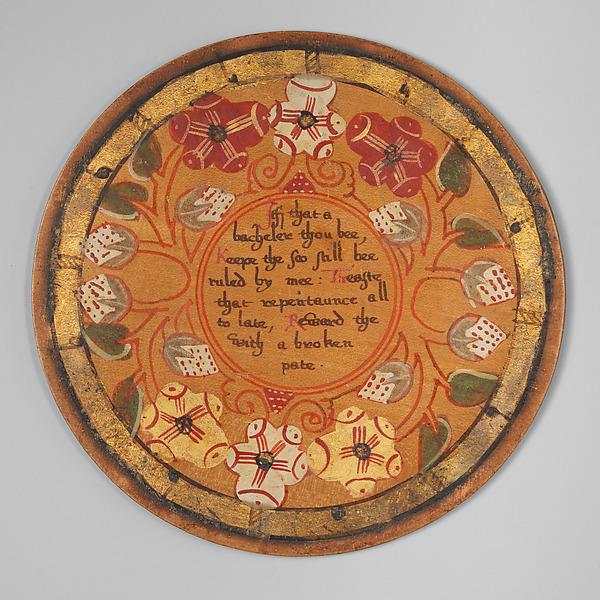 If that a
bacheler thou bee,
Keepe the soo still bee
ruled by mee : Leaste
that repentaunce all
to late, Reward the
with a broken
pate .